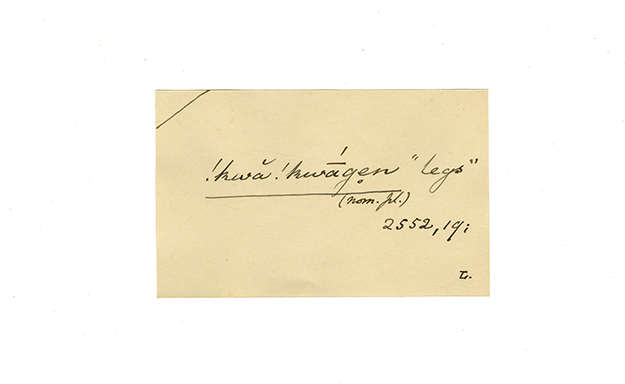 !kwă!kwā́gen̥ "legs"
(nom. pl.)
2552, 19;
L.